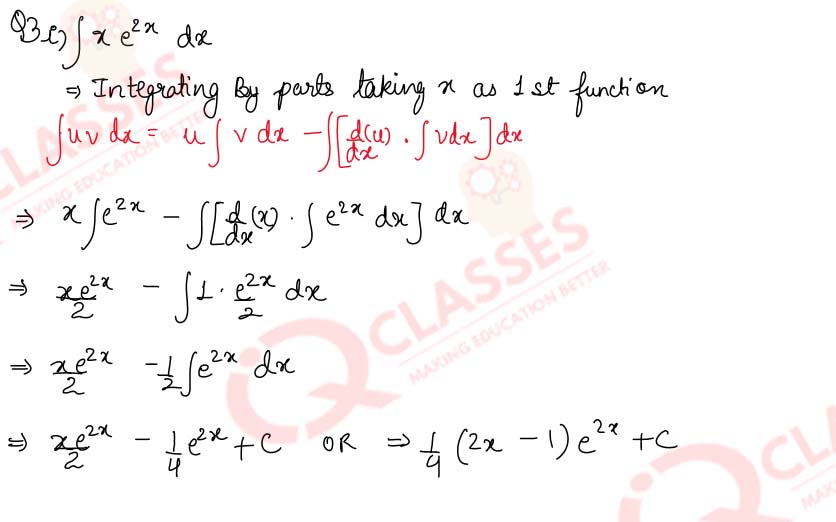 Q3 i) ∫ x e^{2x} dx
⇒ Integrating By parts taking x as 1st function
∫uv dx = u∫v dx − ∫[d(u)/dx . ∫vdx]dx
⇒ x∫e^{2x} − ∫[d/dx(x) . ∫e^{2x} dx] dx
⇒ xe^{2x}/2 − ∫1 . e^{2x}/2 dx
⇒ xe^{2x}/2 − 1/2∫e^{2x} dx
⇒ xe^{2x}/2 − 1/4 e^{2x} + C OR ⇒ 1/4 (2x − 1) e^{2x} + C
CLASSES
MAKING EDUCATION BETTER
IQ CLASSES
MAKING EDUCATION BETTER